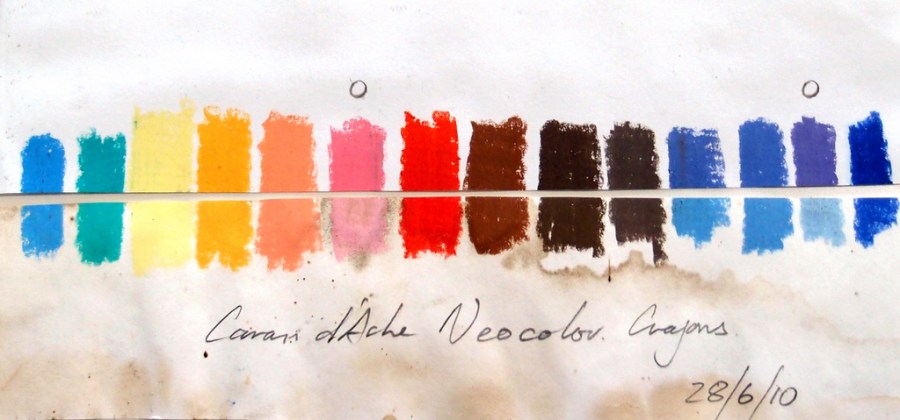 Caran d'Ache Neocolor. Crayons.
28/6/10